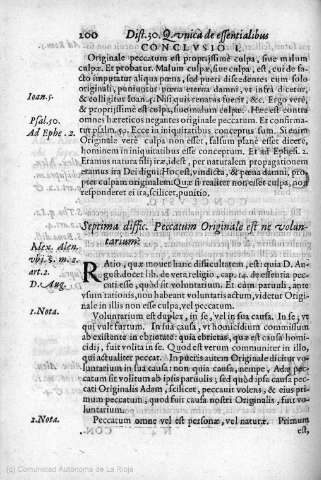 200 Dist. 30. Q. vnica de essentialibus
CONCLVSIO I.
Originale peccatum est propriissimè culpa, siue malum
culpæ. Et probatur. Malum culpæ, siue culpa, est, cui de fa-
cto imputatur aliqua pœna, sed pueri discedentes cum solo
originali, puniuntur pœna æterna damni, vt infrà dicetur,
& colligitur Ioan. 3. Nisi quis renatus fuerit, &c. Ergo verè,
& propriissimè est culpa, siue malum culpæ. Hæc est contra
omnes hæreticos negantes originale peccatum. Et confirma-
tur psalm. 50. Ecce in iniquitatibus conceptus sum. Si enim
Originale verè culpa non esset, falsum planè esset dicere,
hominem in iniquitatibus esse conceptum. Et ad Ephes. 2.
Eramus natura filij iræ, idest, per naturalem propagationem
eramus ira Dei digni. Hoc est, vindicta, & pœna damni, pro-
pter culpam originalem. Quæ si reatter non esset culpa, no
responderet ei ira, scilicet, punitio.
Ioan. 5.
Psal. 50.
Ad Ephe. 2.
Septima diffic. Peccatum Originale est ne volun-
tarium?
Alex. Alen.
vbi s. m. 2.
art. 2.
D. Aug.
RAtio, quæ mouet hanc difficultatem, est: quia D. Au-
gust. docet lib. de vera religio, cap. 14. de essentia pec-
cati esse, quòd sit voluntarium. Et cùm paruuli, ante
vsum rationis, non habeant voluntarios actus, videtur Origi-
nale in illis non esse culpa, vel peccatum.
1. Nota.
Voluntarium est duplex, in se, vel in sua causa. In se, vt
qui vult furtum. In sua causa, vt homicidium commissum
ab existente in ebrietate: quia ebrietas, quæ est causa homi-
cidij, fuit volita in se. Quod est verum communiter in illo,
qui actualiter peccat. In pueris autem Originale dicitur vo-
luntarium in sua causa: non quia causa, nempe, Adæ pec-
catum sit volitum ab ipsis paruulis; sed quòd ipsa causa pec-
cati Originalis Adam, scilicet, peccauit volens, & eius pri-
mum peccatum, quod fuit causa nostri Originalis, fuit vo-
luntarium.
2. Nota.
Peccatum omne vel est personæ, vel naturæ. Primum
est,
(c) Comunidad Autónoma de La Rioja